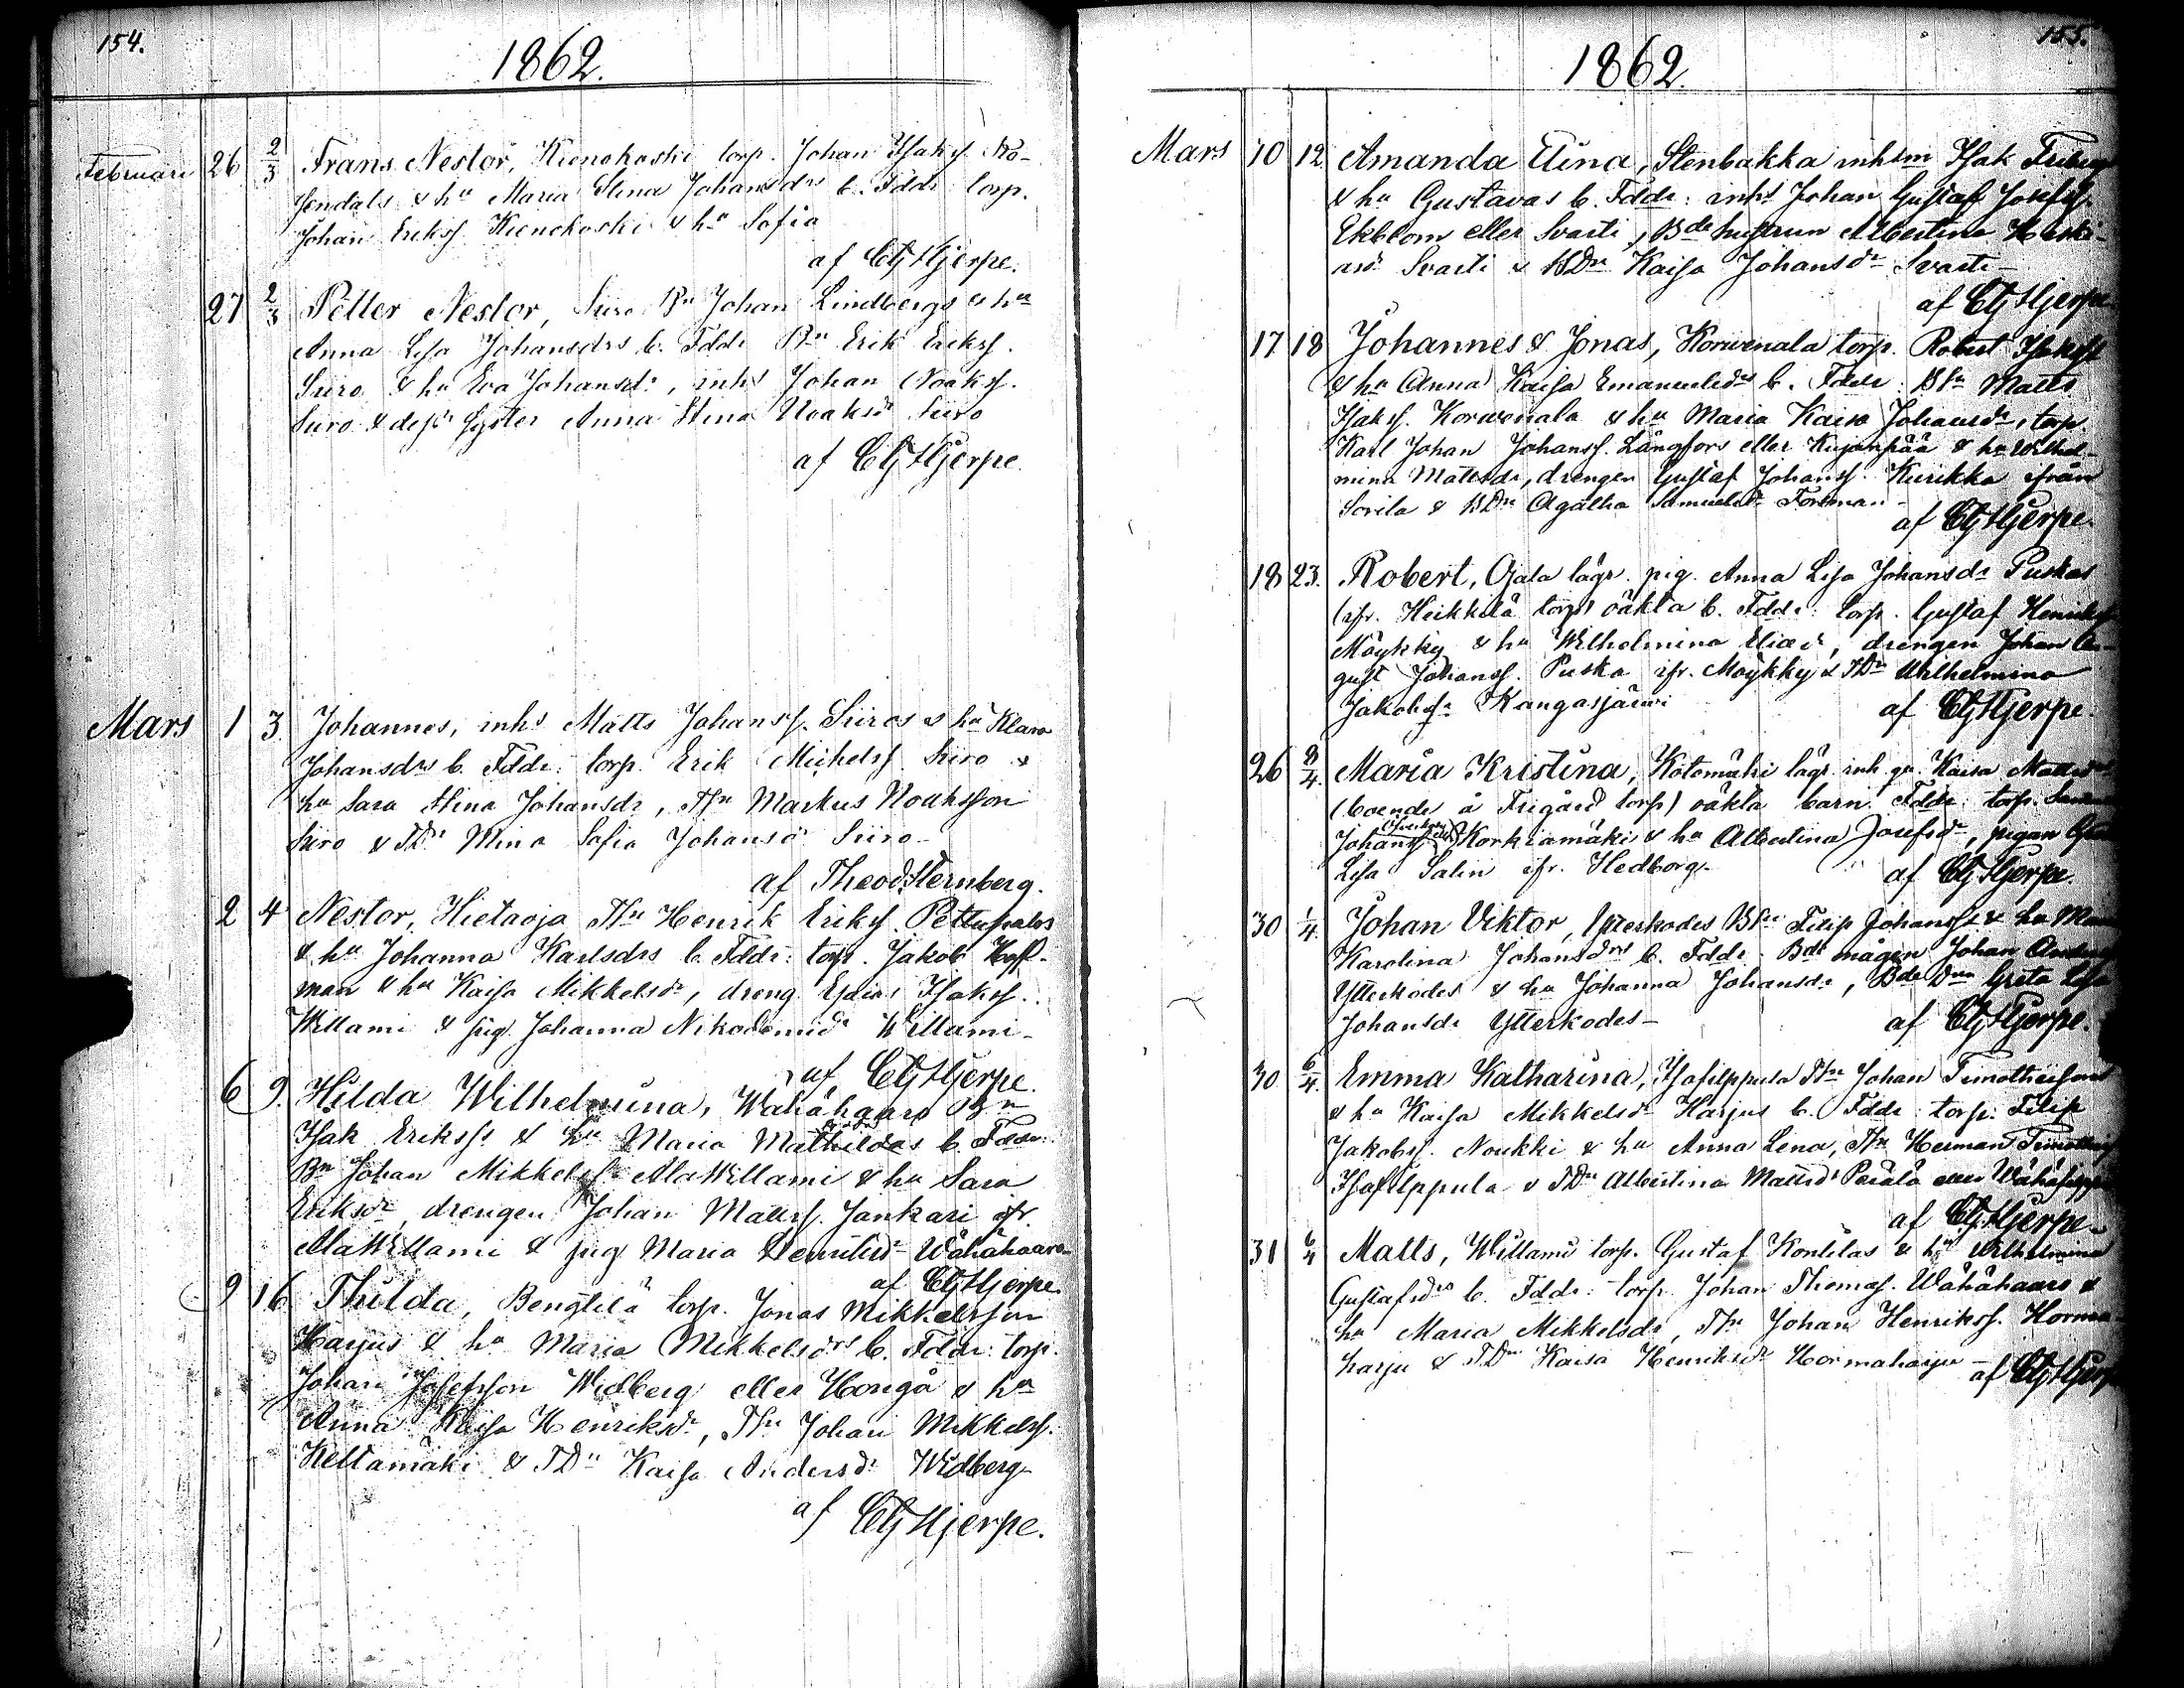 154.
1862.
Februari 26 2/3 Frans Nestor, Kienokoski torp. Johan Isaks. Ro-
sendals & hu Maria Stina Johansdrs b. Fddr torp.
Johan Erikss. Kienokoski & hu Sofia
af CGHjerpe.
27 2/3 Petter Nestor, Siiro Bn Johan Lindbergs & hu
Anna Lisa Johansdrs b. Fddr Bn Erik Erikss.
Siiro & hu Eva Johansdr, inhs Johan Noakss.
Siiro & dess syster Anna Stina Noaksdr Siiro
af CGHjerpe
Mars 1 3. Johannes, inhs Matts Johanss. Siiros & hu Klara
Johansdrs b. Fddr: torp. Erik Michelss. Siiro &
hu Sara Stina Johansdr, TSn Markus Noaksson
Siiro & TDr Mina Sofia Johansdr Siiro-
af Theod. Sternberg.
2 4 Nestor, Hietaoja TSn Henrik Erikss.
& hu Johanna Karlsdrs b. Fddr: torp. Jakob Hoff-
man & hu Kaisa Mikkelsdr, dreng. Esaias Isakss.
Willami & pig. Johanna Nikodemidr Willami-
af CGHjerpe.
6 9. Hilda Wilhelmina, Wähähaaro Bn
Isak Erikss. & hu Maria Mathildas b. Fddr:
Bn Johan Mikkelss. AlaWillami & hu Sara
Eriksdr, drengen Johan Matts. Jankari ifr.
AlaWillami & pig Maria Henriksdr Wähähaaro-
af CGHjerpe.
9 16 Thilda, Bengtilä torp. Jonas Mikkelsson
Harjus & hu Maria Mikkelsdrs b. Fddr: torp.
Johan Josefsson Widberg eller Hongå & hu
Anna Kaisa Henriksdr, TSn Johan Mikkelss.
Keltamäki & TDn Kaisa Andersdr Widberg-
af CGHjerpe.
155.
1862.
Mars 10 12 Amanda Elina, Stenbakka inhsm Isak
& hu Gustavas b. Fddr: inhs Johan Gustaf Josefss.
Ekblom eller Svarti, Bde hustrun Albertina
Svarti & BDn Kaisa Johansdr Svarti-
af CGHjerpe
17 18 Johannes & Jonas, Korvenala torp. Robert Isakss.
& hu Anna Kaisa Emanuelsdrs b. Fddr: BSn Matts
Isakss. Korwenala & hu Maria Kaisa Johansdr, torp.
Karl Johan Johanss. Långfors eller Kujanpää & hu Wilhel-
mina Mattsdr, drengen Gustaf Johanss. Kurikka ifrån
Sorila & BDn Agatha Samuelsdr Forsman-
af CGHjerpe.
18 23. Robert, Ojala lägr. pig. Anna Lisa Johansdr Puskas
(ifr. Heikkilä torp) oäkta b. Fddr: torp. Gustaf Henrikss.
Möykky & hu Wilhelmina Eliædr, drengen Johan Au-
gust Johanss. Puska ifr. Möykky & TDn Wilhelmina
Jakobsdr Kangasjärwi
af CGHjerpe.
26 8/4. Maria Kristina, Kotomäki lägr. inh. qv. Kaisa Mattsdrs
(boende å Frigård torp) oäkta barn. Fddr: torp.
Johanss. Korkiamäki & hu Albertina Josefsdr, pigan
Lisa Salin ifr. Hedborg-
af CGHjerpe.
30 1/4. Johan Viktor, Ytterkodes BSn Filip Johanss. & hu
Karolina Johansdrs b. Fddr: Bde mågen Johan
Ytterkodes & hu Johanna Johansdr, Bde Dn Greta Lisa
Johansdr Ytterkodes-
af CGHjerpe.
30 6/4. Emma Katharina, TSn Johan Timotheisson
& hu Kaisa Mikkelsdr Harjus b. Fddr: torp. Filip
Jakobss. Noukki & hu Anna Lena, TSn Herman
& TDn Albertina Mattsdr
af CGHjerpe-
31 6/4 Matts, Willami torp. Gustaf Kontilas & hu Wilhelmina
Gustafsdrs b. Fddr: torp. Johan Thomas. Wähähaaro &
hu Maria Mikkelsdr, TSn Johan Henrikss. Horma-
harju & TDn Kaisa Henriksdr Hormaharju-
af CGHjerpe